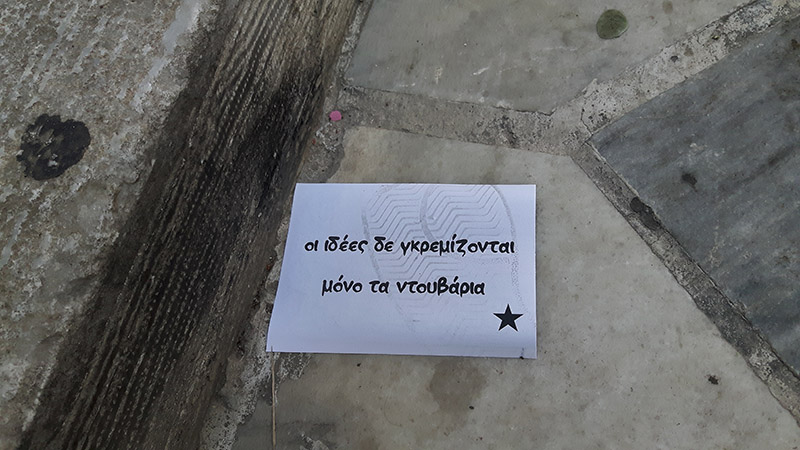 οι ιδέες δε γκρεμίζονται
μόνο τα ντουβάρια